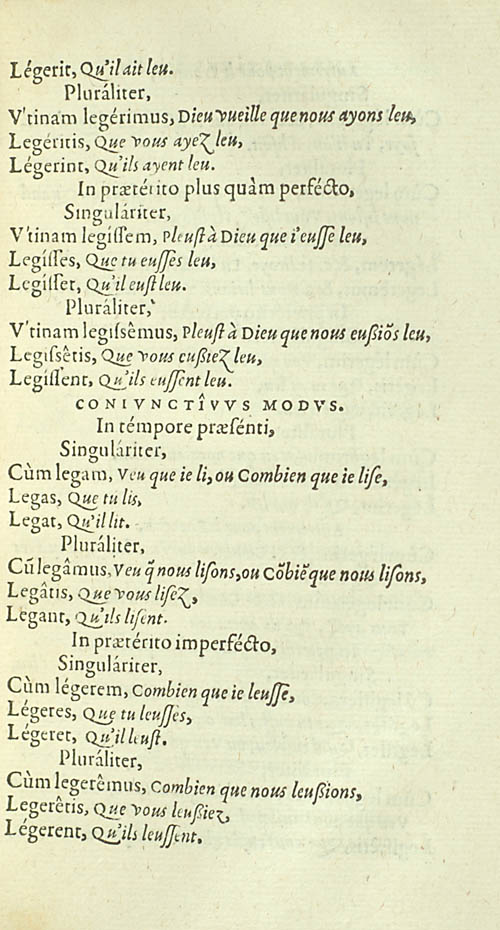 Légerit, Qu'il ait leu.
Pluráliter,
V'tinam legérimus, Dieu vueille que nous ayons leu,
Legéritis, Que vous ayez leu,
Légerint, Qu'ils ayent leu.
In prætérito plus quàm perfécto,
Singuláriter,
V'tinam legíſſem, Pleuſt à Dieu que i'euſſe leu,
Legíſſes, Que tu euſſes leu,
Legíſſet, Qu'il euſt leu.
Pluráliter,
V'tinam legiſsêmus, Pleuſt à Dieu que nous eußiõs leu,
Legiſsêtis, Que vous eußiez leu,
Legíſſent, Qu'ils euſſent leu.
CONIVNCTÎVVS MODVS.
In témpore præſénti,
Singuláriter,
Cùm legam, Veu que ie li, ou Combien que ie liſe,
Legas, Que tu lis,
Legat, Qu'il lit.
Pluráliter,
Cũ legâmus, Veu q̃ nous liſons, ou Cõbiẽ que nous liſons,
Legâtis, Que vous liſez,
Legant, Qu'ils liſent.
In prætérito imperfécto,
Singuláriter,
Cùm légerem, Combien que ie leuſſe,
Légeres, Que tu leuſſes,
Légeret, Qu'il leuſt.
Pluráliter,
Cùm legerêmus, Combien que nous leußions,
Legerêtis, Que vous leußiez,
Légerent, Qu'ils leuſſent.